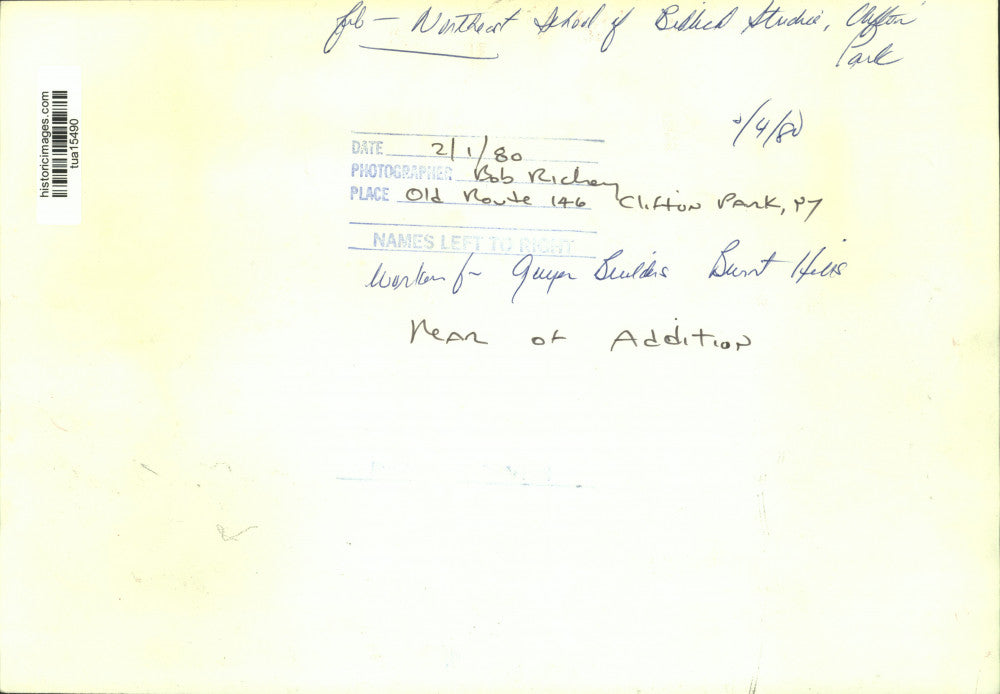 Northeast School of Biblical Studies, Clifton Park
/4/80
historicimages.com
tua15490
DATE 2/1/80
PHOTOGRAPHER Bob Richey
PLACE Old Route 146 Clifton Park, NY
NAMES LEFT TO RIGHT
Builders Burnt Hills
Rear of Addition